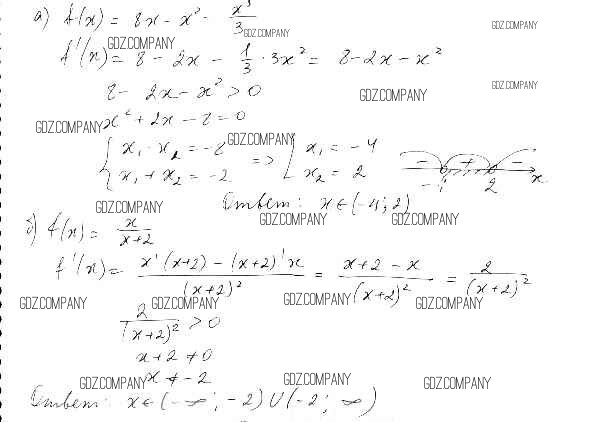 а) f(x) = 8x - x² - x³/3
GDZ.COMPANY
GDZ.COMPANY
GDZ.COMPANY
f'(x) = 8 - 2x - 1/3 · 3x² = 8 - 2x - x²
GDZ.COMPANY
8 - 2x - x² > 0
GDZ.COMPANY
GDZ.COMPANY x² + 2x - 8 = 0
GDZ.COMPANY
{ x₁ · x₂ = -8 => [ x₁ = -4
{ x₁ + x₂ = -2 [ x₂ = 2
- + -
-4 2 x
Ответ: x ∈ (-4; 2)
GDZ.COMPANY
GDZ.COMPANY
GDZ.COMPANY
б) f(x) = x/(x+2)
f'(x) = (x'(x+2) - (x+2)'x)/(x+2)² = (x+2-x)/(x+2)² = 2/(x+2)²
GDZ.COMPANY
GDZ.COMPANY
GDZ.COMPANY
GDZ.COMPANY
2/(x+2)² > 0
x + 2 ≠ 0
GDZ.COMPANY x ≠ -2
GDZ.COMPANY
GDZ.COMPANY
Ответ: x ∈ (-∞; -2) ∪ (-2; ∞)